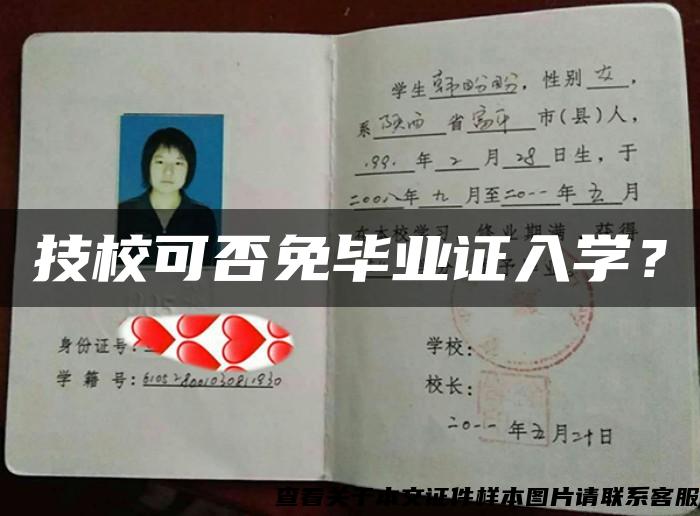 学生韩盼盼,性别女,
系陕西省富平市(县)人,
.99.年2月28日生,于
二00八年九月至二0一一年五月
在本校学习,修业期满,获得
技校可否免毕业证入学?
予毕业
身份证号:
学籍号:610528001030811930
学校:
校长:
二0一一年五月二十日
查看关于本文证件样本图片请联系客服